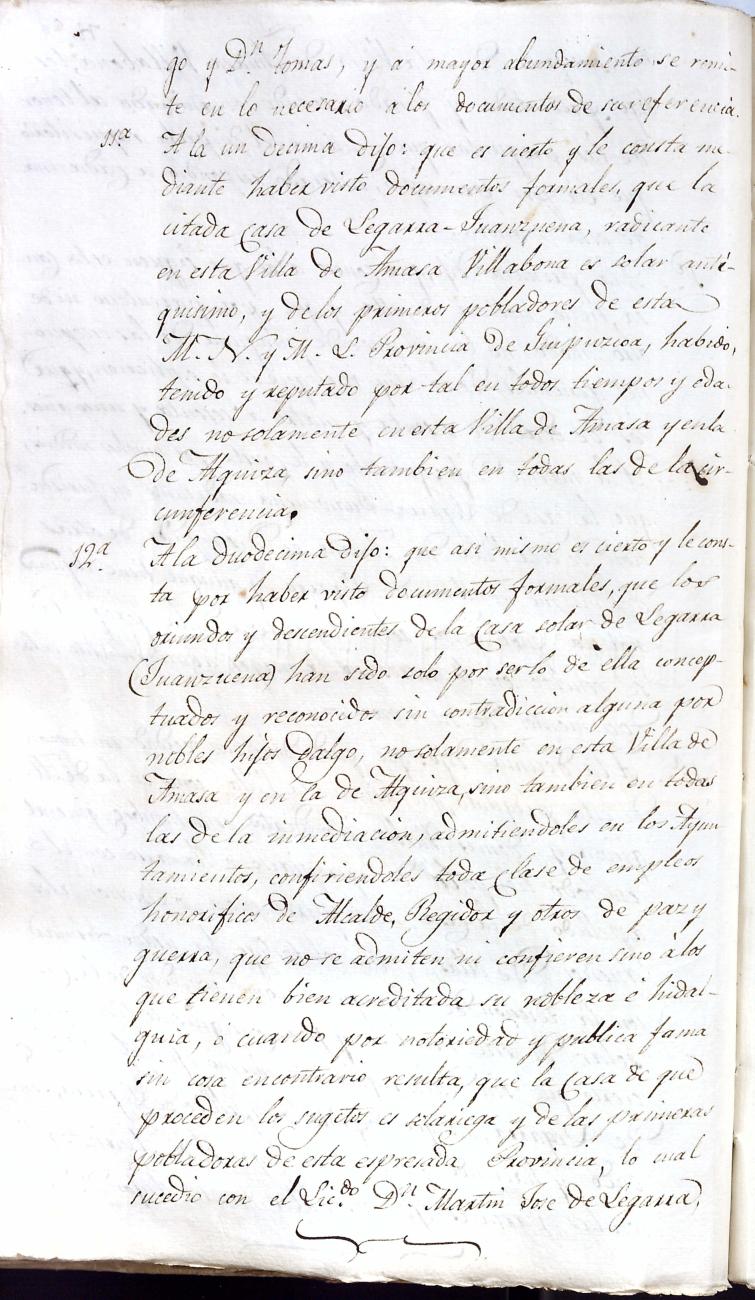 go y Dⁿ. Tomas, y á mayor abundamiento se remi-
te en lo necesario á los documentos de su referencia.
11ª. A la un decima dijo: que es cierto y le consta me-
diante haber visto documentos formales, que la
citada Casa de Legarra-Juanzuena, radicante
en esta Villa de Amasa Villabona es solar anti-
quisimo, y de los primeros pobladores de esta
M. N. y M. L. Provincia de Guipuzcoa, habido,
tenido y reputado por tal en todos tiempos y eda-
des no solamente en esta Villa de Amasa y en la
de Alquiza, sino tambien en todas las de la cir-
cunferencia.
12ª. A la duodecima dijo: que asi mismo es cierto y le cons-
ta por haber visto documentos formales, que los
oriundos y descendientes de la Casa solar de Legarra
(Juanzuena) han sido solo por serlo de ella concep-
tuados y reconocidos sin contradiccion alguna por
nobles hijos dalgo, no solamente en esta Villa de
Amasa y en la de Alquiza, sino tambien en todas
las de la inmediacion, admitiendoles en los Ayun
tamientos, confiriendoles toda clase de empleos
honorificos de Alcalde, Regidor y otros de paz y
guerra, que no se admiten ni confieren sino á los
que tienen bien acreditada su nobleza é hidal-
guia, ó cuando por notoriedad y publica fama
sin cosa encontrario resulta, que la Casa de que
proceden los sugetos es solariega y de las primeras
pobladoras de esta espresada Provincia, lo cual
sucedio con el Licᵈᵒ. Dⁿ. Martin Jose de Legarra,